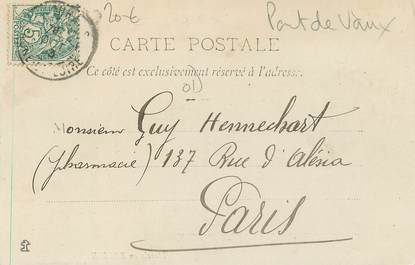 20 €
Pont de Vaux
CARTE POSTALE
Ce côté est exclusivement réservé à l'adresse.
01
Monsieur Guy Hennechart
(pharmacie) 137 Rue d'Alésia
Paris